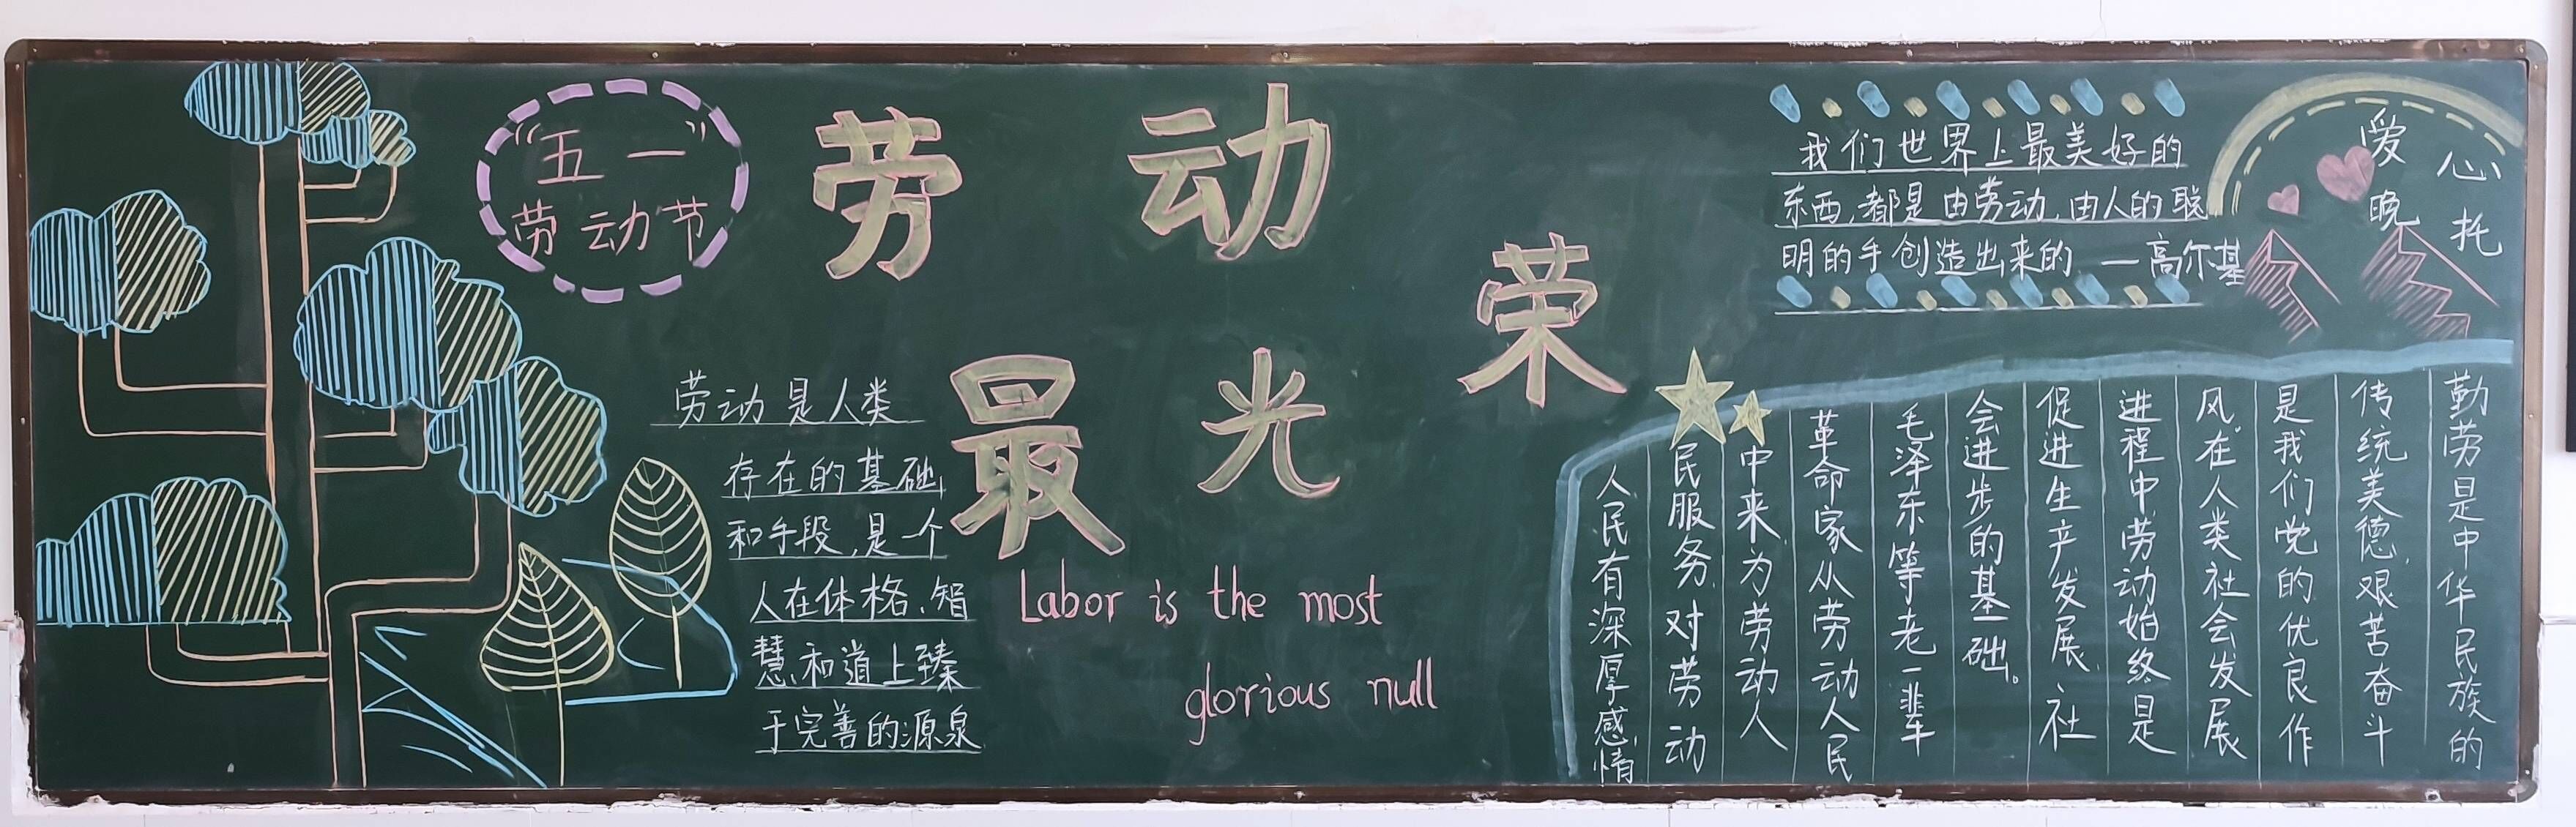 “五一”
劳动节
劳动
最光荣
劳动是人类
存在的基础
和手段,是一个
人在体格、智
慧、和道上臻
于完善的源泉
Labor is the most
glorious null
我们世界上最美好的
东西,都是由劳动、由人的聪
明的手创造出来的 —高尔基
爱心
晚托
勤劳是中华民族的
传统美德,艰苦奋斗
是我们党的优良作
风。在人类社会发展
进程中劳动始终是
促进生产发展、社
会进步的基础。
毛泽东等老一辈
革命家从劳动人民
中来为劳动人
民服务、对劳动
人民有深厚感情